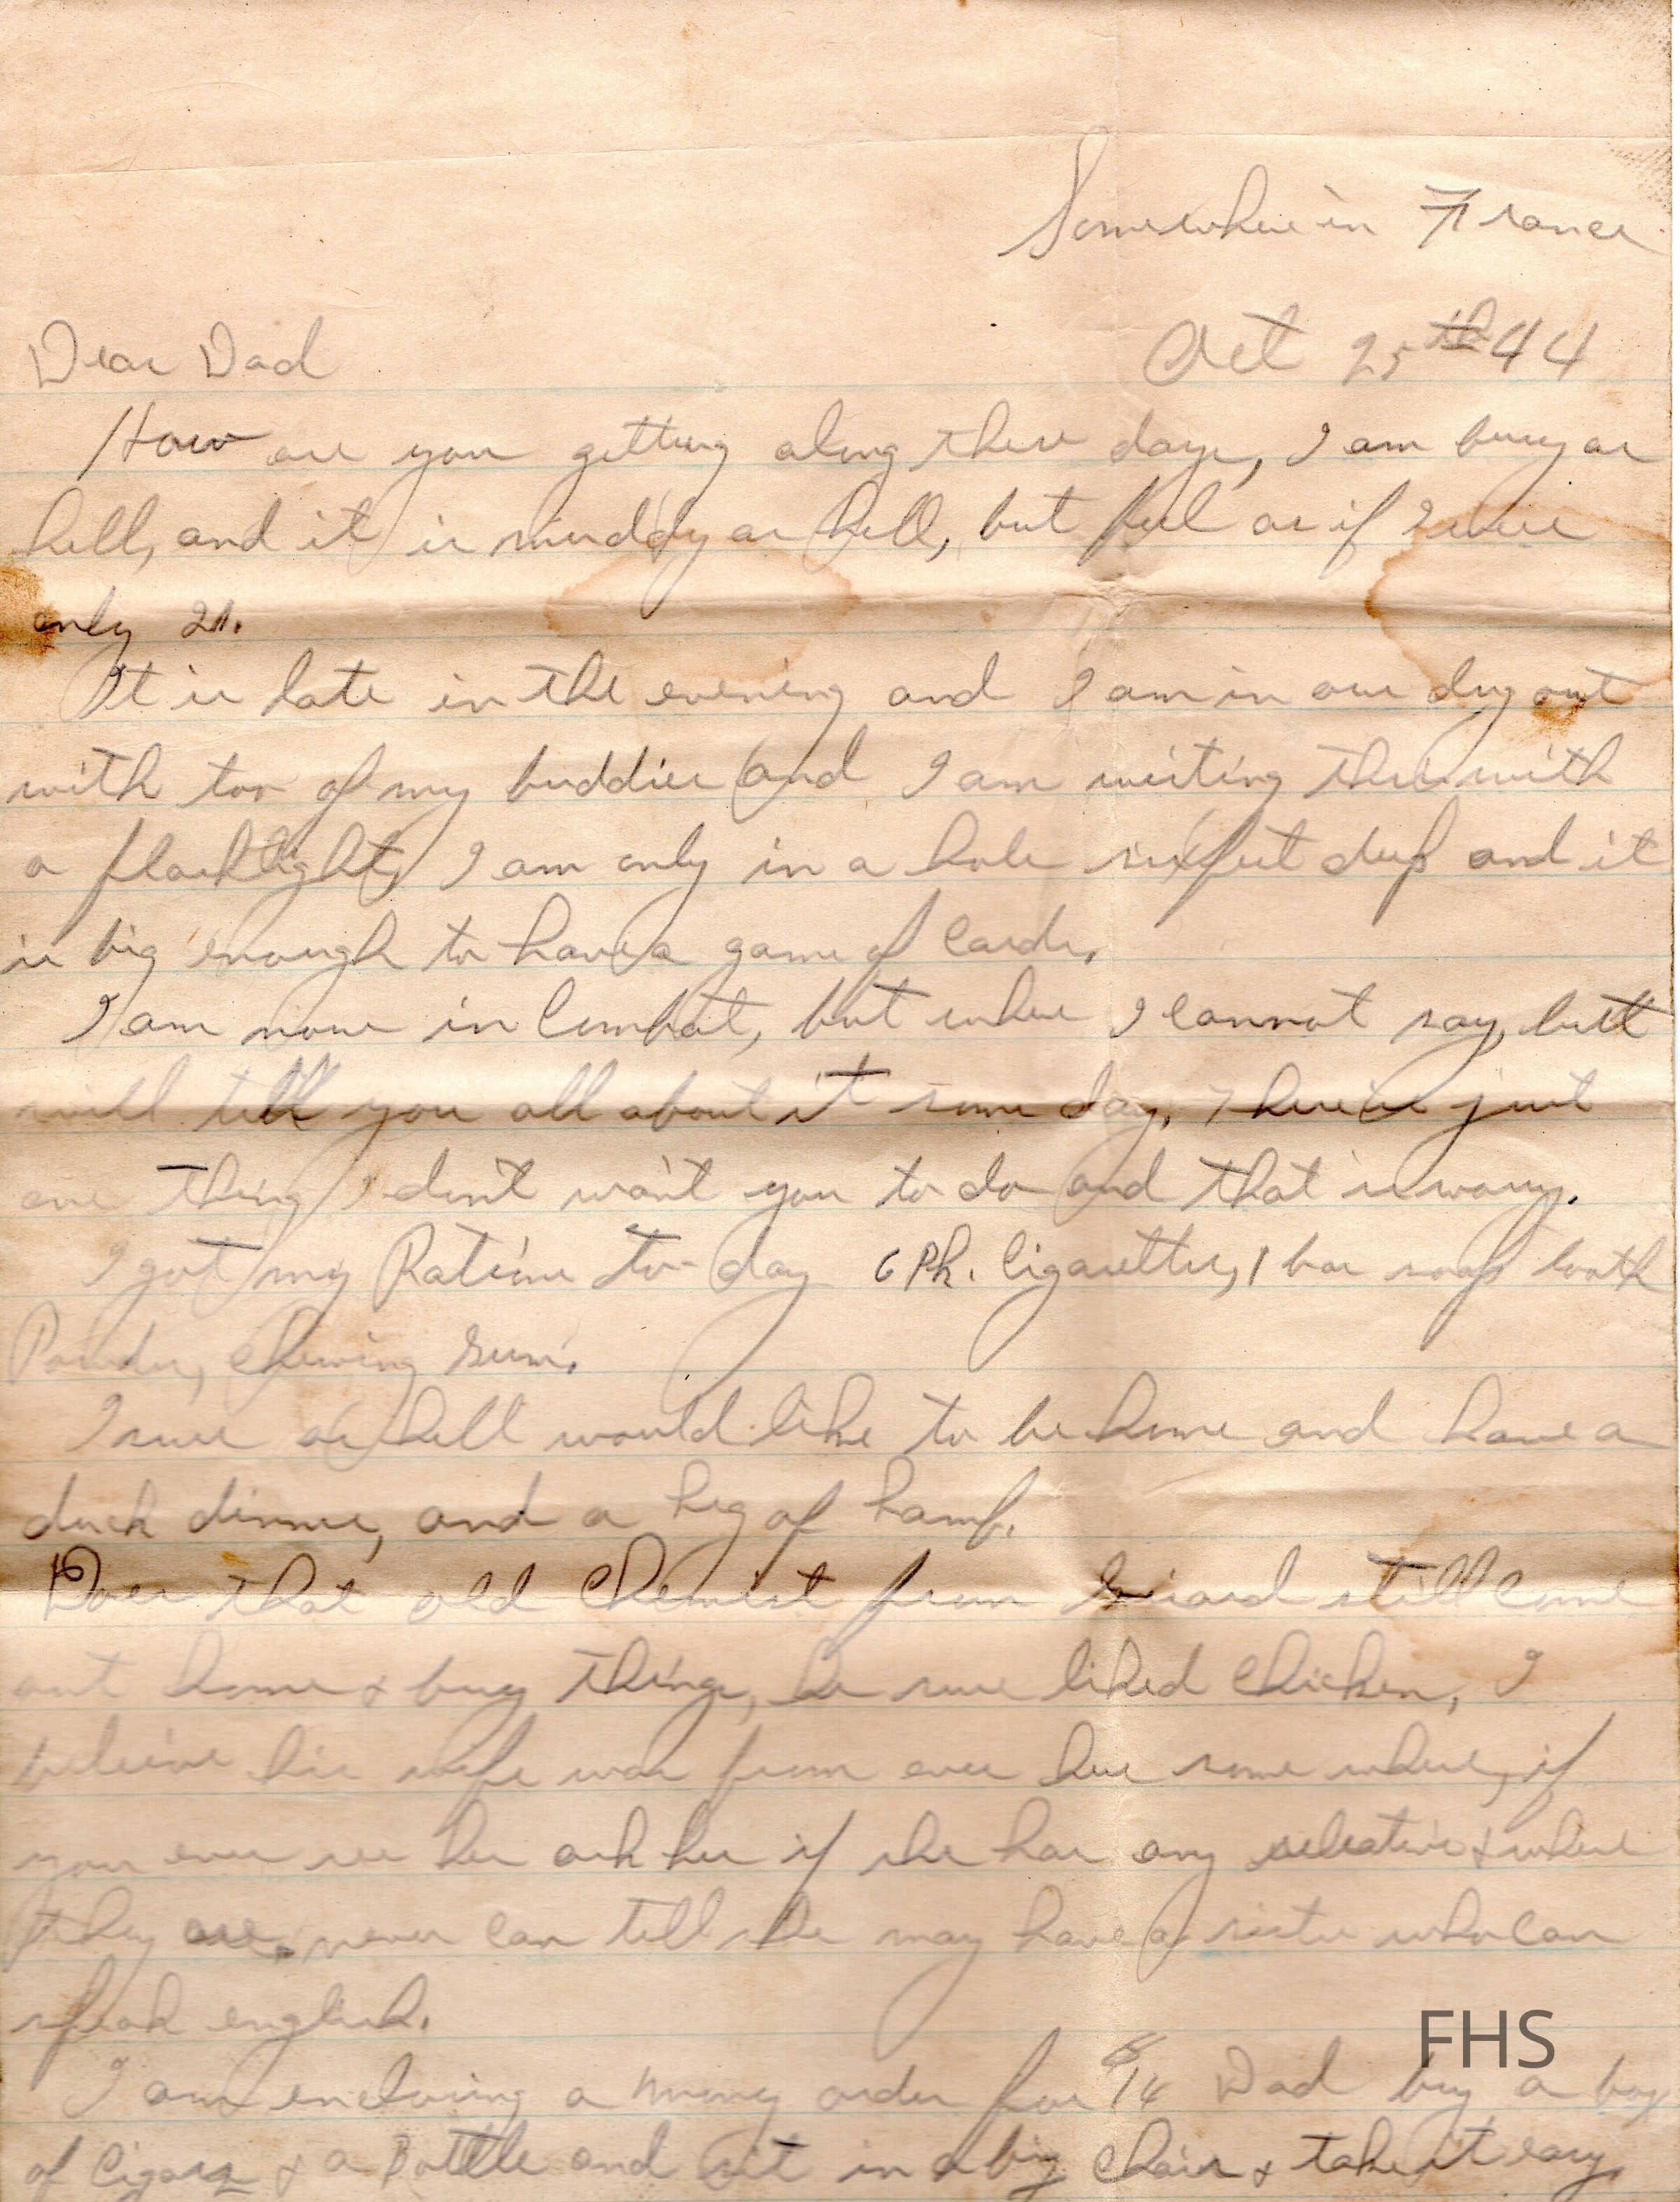 Somewhere in France
Oct 25th 44
Dear Dad
How are you getting along these days, I am busy as
hell, and it is muddy as hell, but feel as if I were
only 21.
It is late in the evening and I am in our dug out
with too of my buddies and I am writing this with
a flashlight, I am only in a hole six feet deep and it
is big enough to have a game of cards.
I am now in Combat, but where I cannot say, but
will tell you all about it some day. There is just
one thing I don't want you to do and that is worry.
I got my Rations to-day 6 Pk. Cigarettes, 1 bar soap tooth
Powder, Chewing Gum.
I sure as hell would like to be home and have a
duck dinner, and a keg of
Does that old Chemist from Girard still come
out home & buy things, he sure liked Chicken, I
believe his wife was from over here some where, if
you ever see her ask her if she has any relative & where
they are, never can tell she may have a sister who can
speak english.
I am enclosing a money order for Dad buy a box
of Cigars & a Bottle and sit in a big Chair & take it easy,
FHS